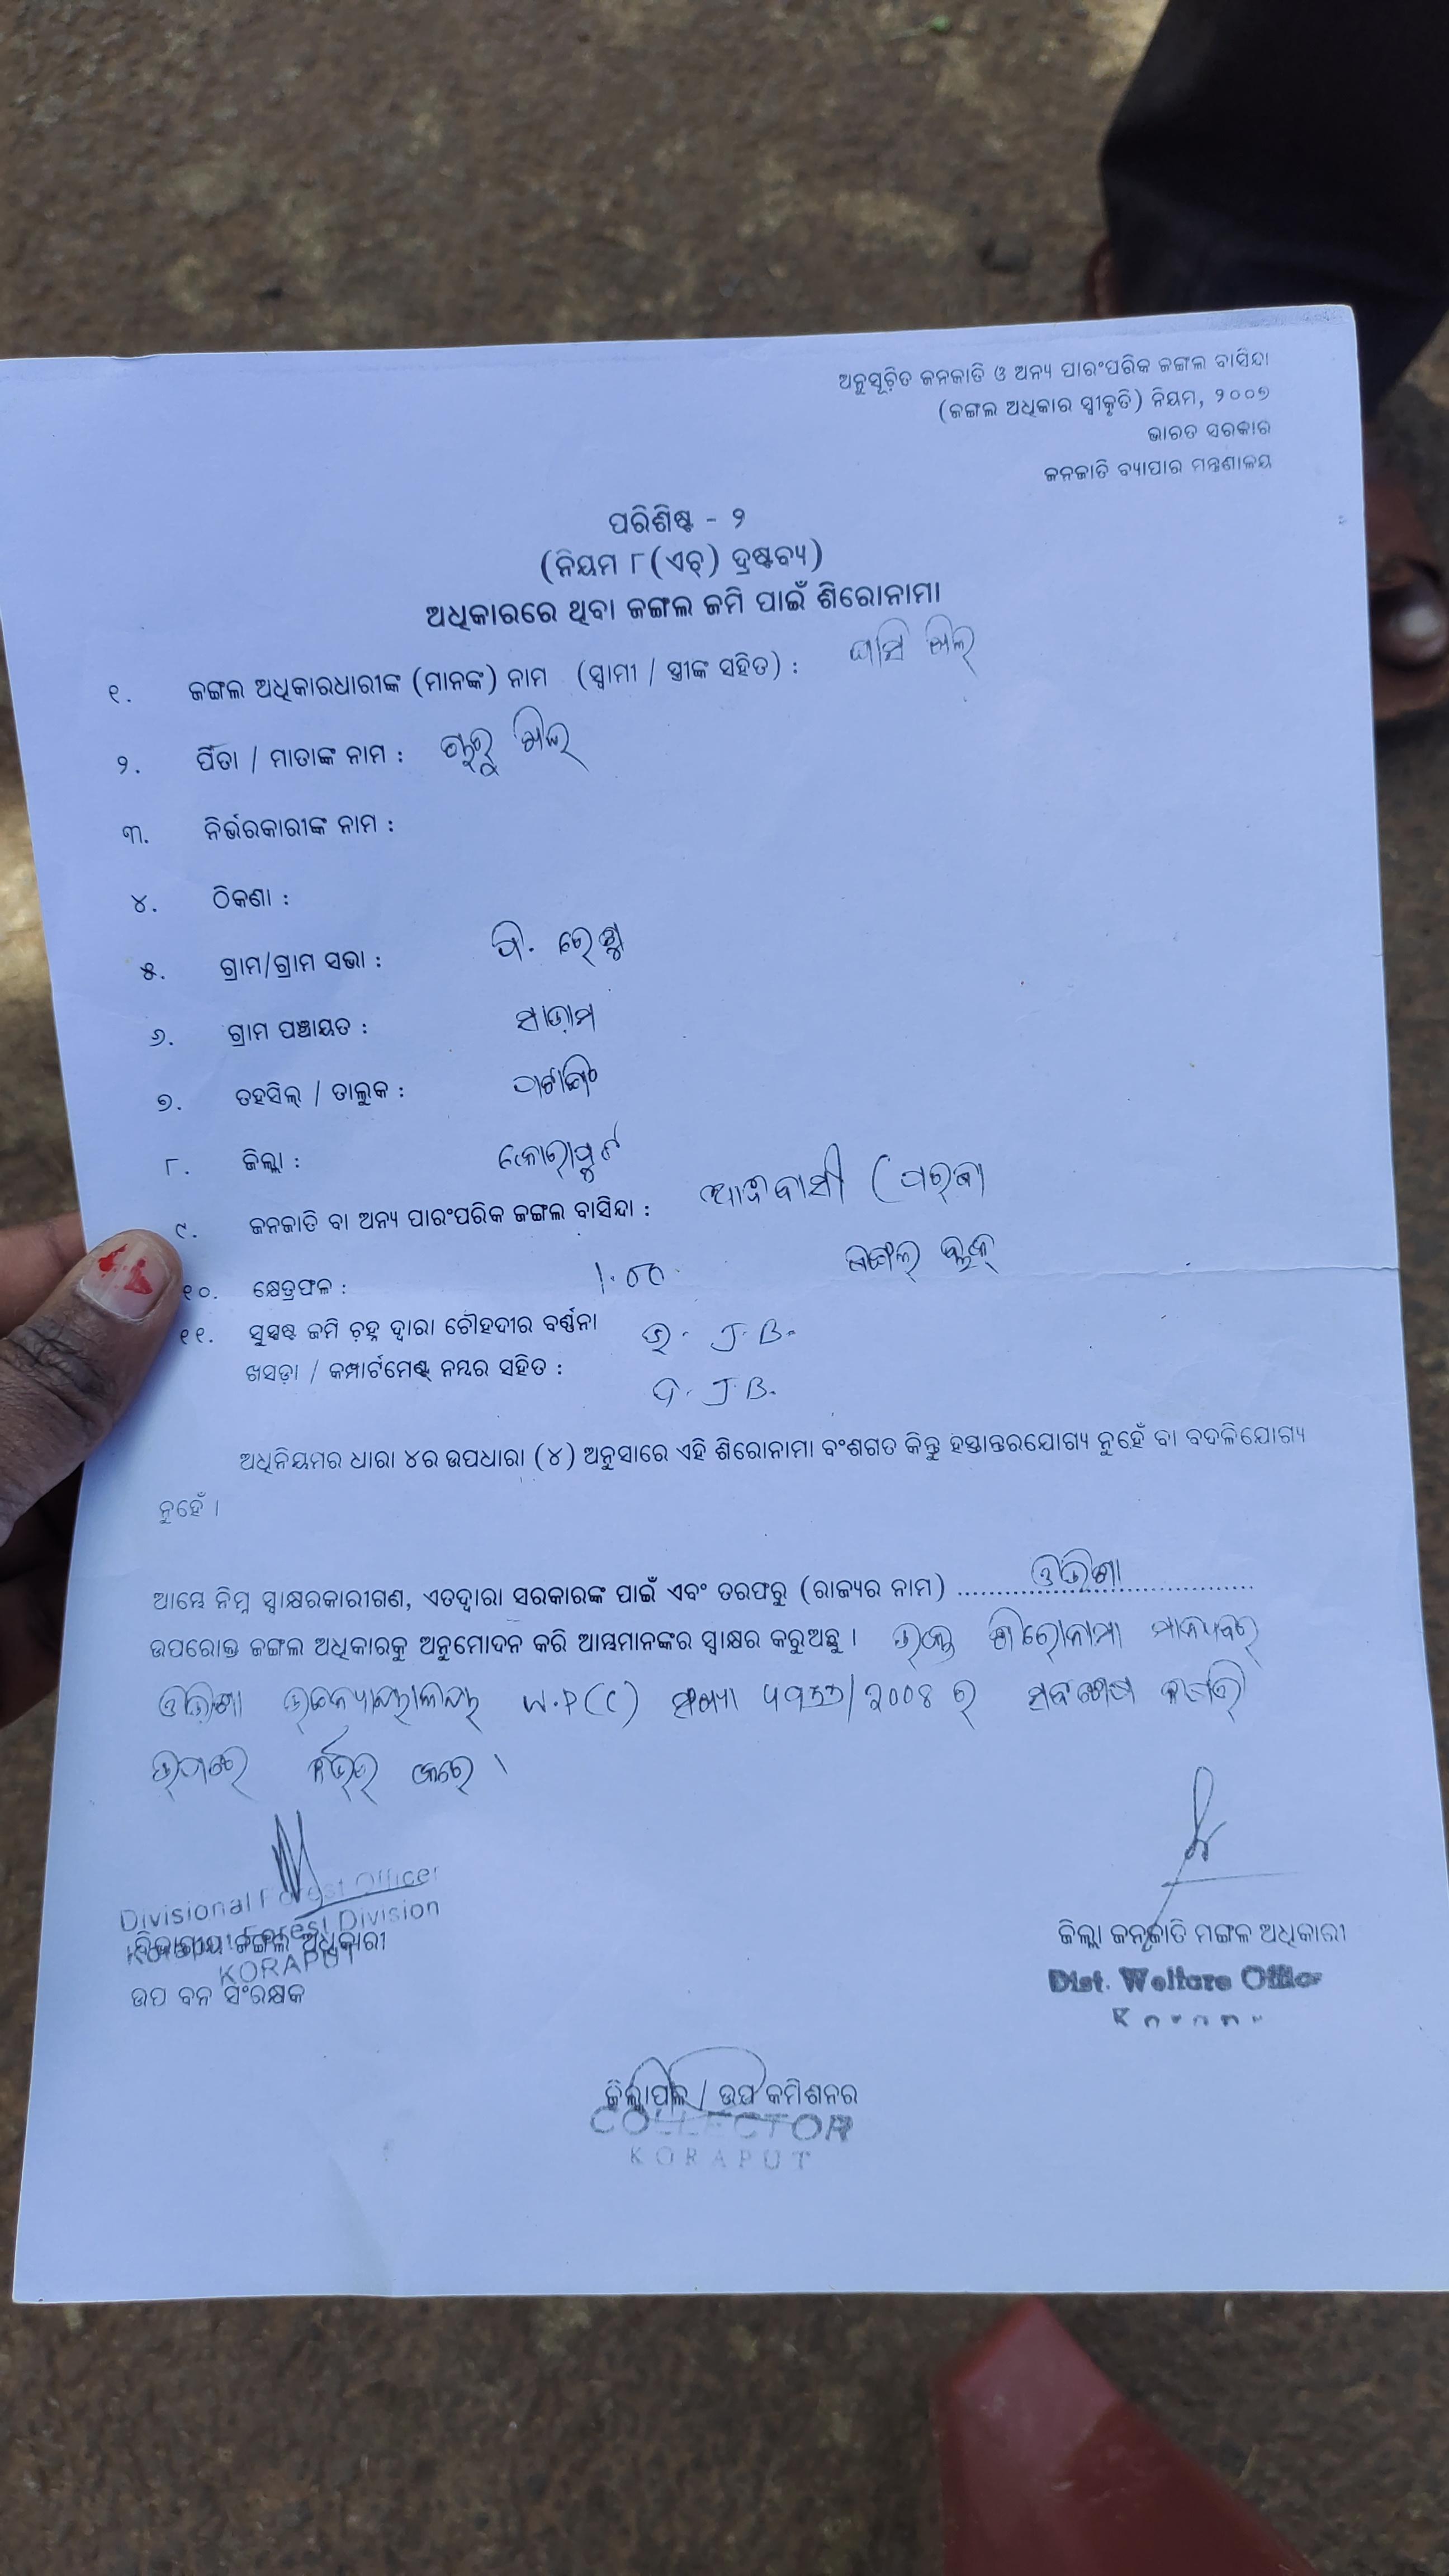 ଅନୁସୂଚିତ ଜନଜାତି ଓ ଅନ୍ୟ ପାରଂପରିକ ଜଙ୍ଗଲ ବାସିନ୍ଦା
(ଜଙ୍ଗଲ ଅଧିକାର ସ୍ୱୀକୃତି) ନିୟମ, ୨୦୦୭
ଭାରତ ସରକାର
ଜନଜାତି ବ୍ୟାପାର ମନ୍ତ୍ରଣାଳୟ
ପରିଶିଷ୍ଟ - ୨
(ନିୟମ ୮(ଏଚ୍) ଦ୍ରଷ୍ଟବ୍ୟ)
ଅଧିକାରରେ ଥିବା ଜଙ୍ଗଲ ଜମି ପାଇଁ ଶିରୋନାମା
୧. ଜଙ୍ଗଲ ଅଧିକାରଧାରୀଙ୍କ (ମାନଙ୍କ) ନାମ (ସ୍ୱାମୀ / ସ୍ତ୍ରୀଙ୍କ ସହିତ) :
୨. ପିତା / ମାତାଙ୍କ ନାମ :
୩. ନିର୍ଭରକାରୀଙ୍କ ନାମ :
୪. ଠିକଣା :
୫. ଗ୍ରାମ/ଗ୍ରାମ ସଭା :
୬. ଗ୍ରାମ ପଞ୍ଚାୟତ :
୭. ତହସିଲ୍ / ତାଲୁକ : ପଟାଙ୍ଗି
୮. ଜିଲ୍ଲା : କୋରାପୁଟ
୯. ଜନଜାତି ବା ଅନ୍ୟ ପାରଂପରିକ ଜଙ୍ଗଲ ବାସିନ୍ଦା : ଆଦିବାସୀ (ପରଜା
୧୦. କ୍ଷେତ୍ରଫଳ : ଜଙ୍ଗଲ୍ ବ୍ଲକ୍
୧୧. ସୁସ୍ପଷ୍ଟ ଜମି ଚିହ୍ନ ଦ୍ୱାରା ଚୌହଦୀର ବର୍ଣ୍ଣନା ଉ. J.B.
ଖସଡ଼ା / କମ୍ପାର୍ଟମେଣ୍ଟ୍ ନମ୍ବର ସହିତ : ଦ. J.B.
ଅଧିନିୟମର ଧାରା ୪ର ଉପଧାରା (୪) ଅନୁସାରେ ଏହି ଶିରୋନାମା ବଂଶଗତ କିନ୍ତୁ ହସ୍ତାନ୍ତରଯୋଗ୍ୟ ନୁହେଁ ବା ବଦଳିଯୋଗ୍ୟ
ନୁହେଁ ।
ଆମ୍ଭେ ନିମ୍ନ ସ୍ୱାକ୍ଷରକାରୀଗଣ, ଏତଦ୍ୱାରା ସରକାରଙ୍କ ପାଇଁ ଏବଂ ତରଫରୁ (ରାଜ୍ୟର ନାମ) ..... ଓଡିଶା .....
ଉପରୋକ୍ତ ଜଙ୍ଗଲ ଅଧିକାରକୁ ଅନୁମୋଦନ କରି ଆମ୍ଭମାନଙ୍କର ସ୍ୱାକ୍ଷର କରୁଅଛୁ । ଉକ୍ତ ଶିରୋନାମା ମାନ୍ୟବର
ଓଡିଶା ଉଚ୍ଚନ୍ୟାୟାଳୟ W.P(C) ସଂଖ୍ୟା ର
ଉପରେ ନିର୍ଭର କରେ ।
Divisional Forest Officer
Forest Division
ବିଭାଗୀୟ ଜଙ୍ଗଲ ଅଧିକାରୀ
KORAPUT
ଉପ ବନ ସଂରକ୍ଷକ
ଜିଲ୍ଲା ଜନଜାତି ମଙ୍ଗଳ ଅଧିକାରୀ
Dist. Welfare Officer
ଜିଲ୍ଲାପାଳ / ଉପ କମିଶନର
COLLECTOR
KORAPUT